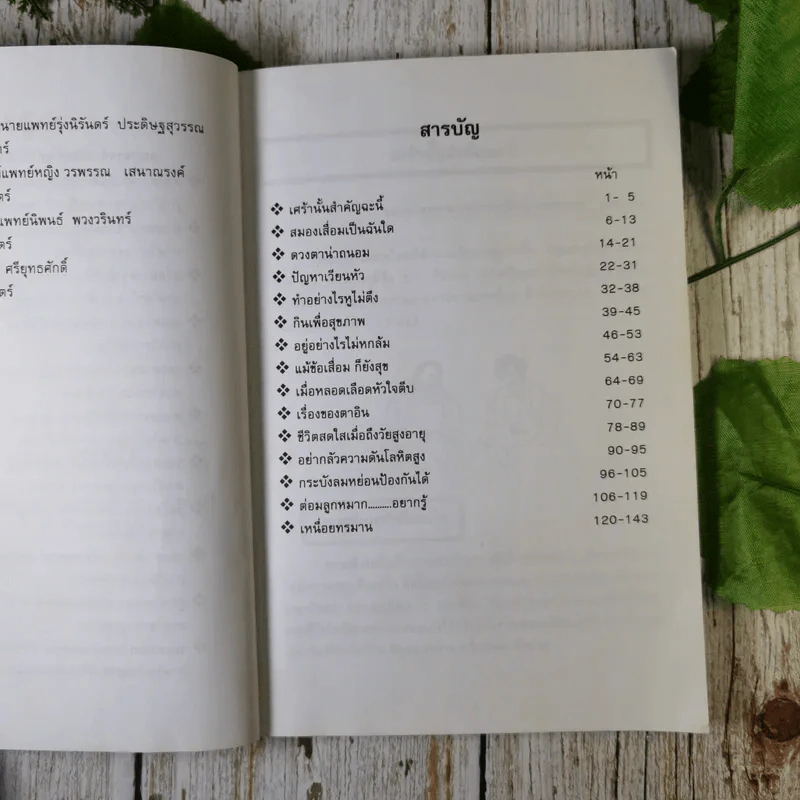 นายแพทย์รุ่งนิรันดร์ ประดิษฐสุวรรณ
แพทย์หญิง วรพรรณ เสนาณรงค์
แพทย์นิพนธ์ พวงวรินทร์
ศรียุทธศักดิ์
สารบัญ
หน้า
❖ เศร้านั้นสำคัญฉะนี้ 1- 5
❖ สมองเสื่อมเป็นฉันใด 6-13
❖ ดวงตาน่าถนอม 14-21
❖ ปัญหาเวียนหัว 22-31
❖ ทำอย่างไรหูไม่ตึง 32-38
❖ กินเพื่อสุขภาพ 39-45
❖ อยู่อย่างไรไม่หกล้ม 46-53
❖ แม้ข้อเสื่อม ก็ยังสุข 54-63
❖ เมื่อหลอดเลือดหัวใจตีบ 64-69
❖ เรื่องของตาอิน 70-77
❖ ชีวิตสดใสเมื่อถึงวัยสูงอายุ 78-89
❖ อย่ากลัวความดันโลหิตสูง 90-95
❖ กระบังลมหย่อนป้องกันได้ 96-105
❖ ต่อมลูกหมาก..........อยากรู้ 106-119
❖ เหนื่อยทรมาน 120-143